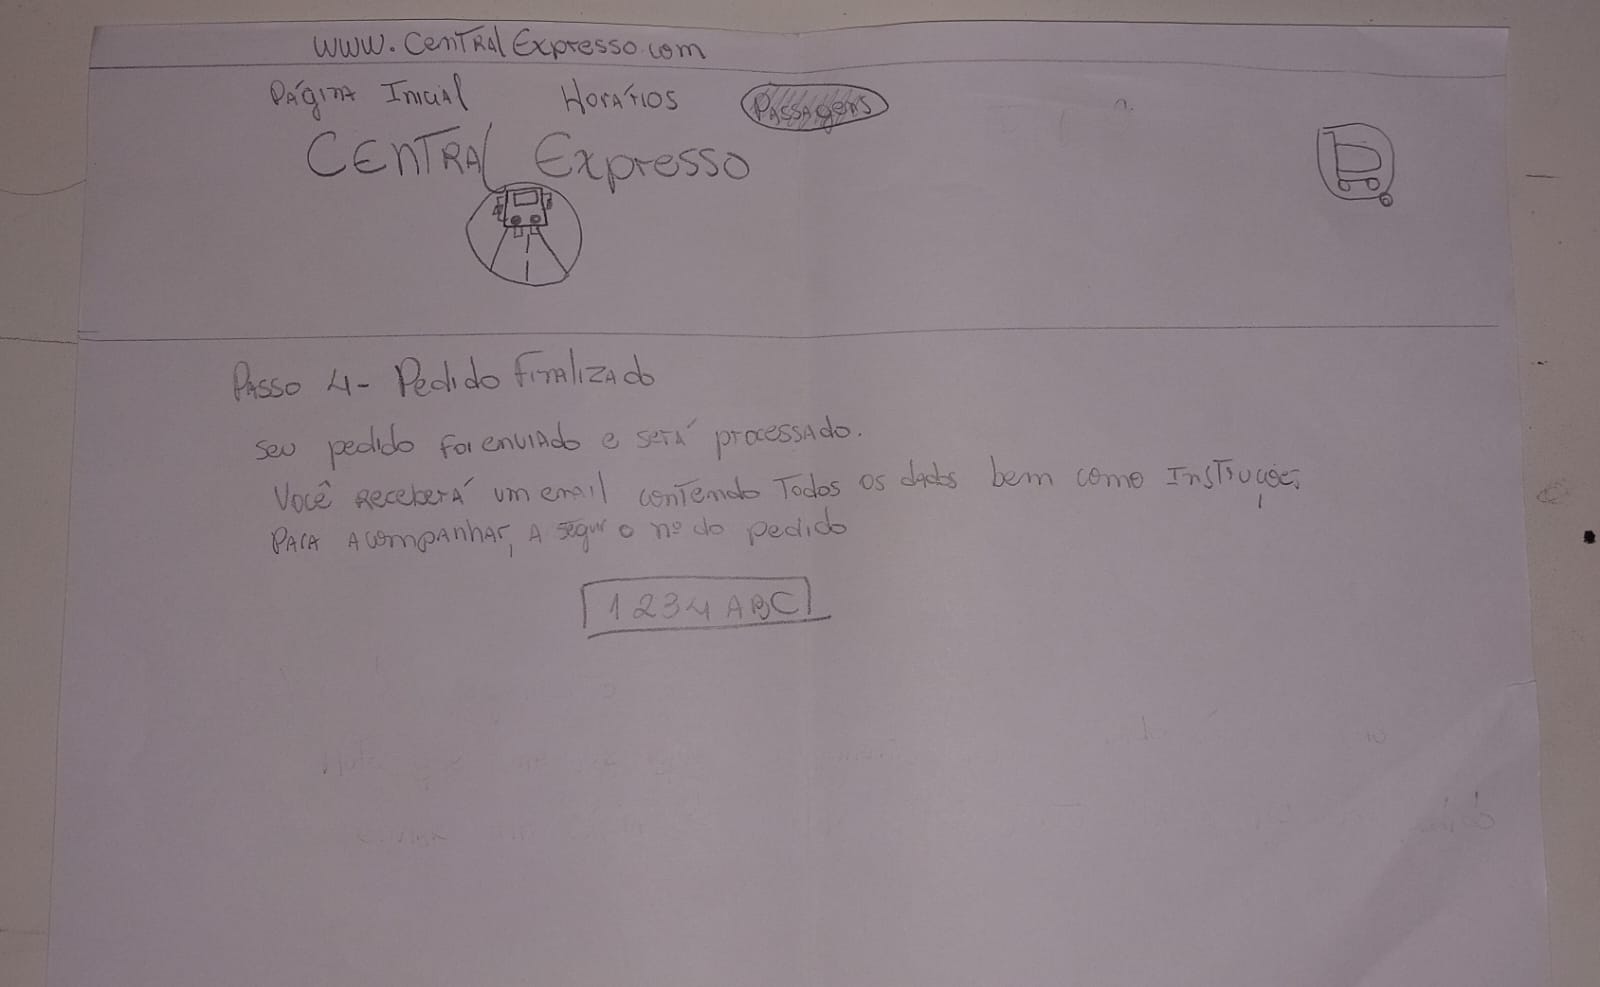 www.CentralExpresso.com
Página Inicial Horários Passagens
Central Expresso
Passo 4- Pedido Finalizado
Seu pedido foi enviado e será processado.
Você receberá um email contendo Todos os dados bem como Instruções
Para acompanhar, a seguir o nº do pedido
1234ABC